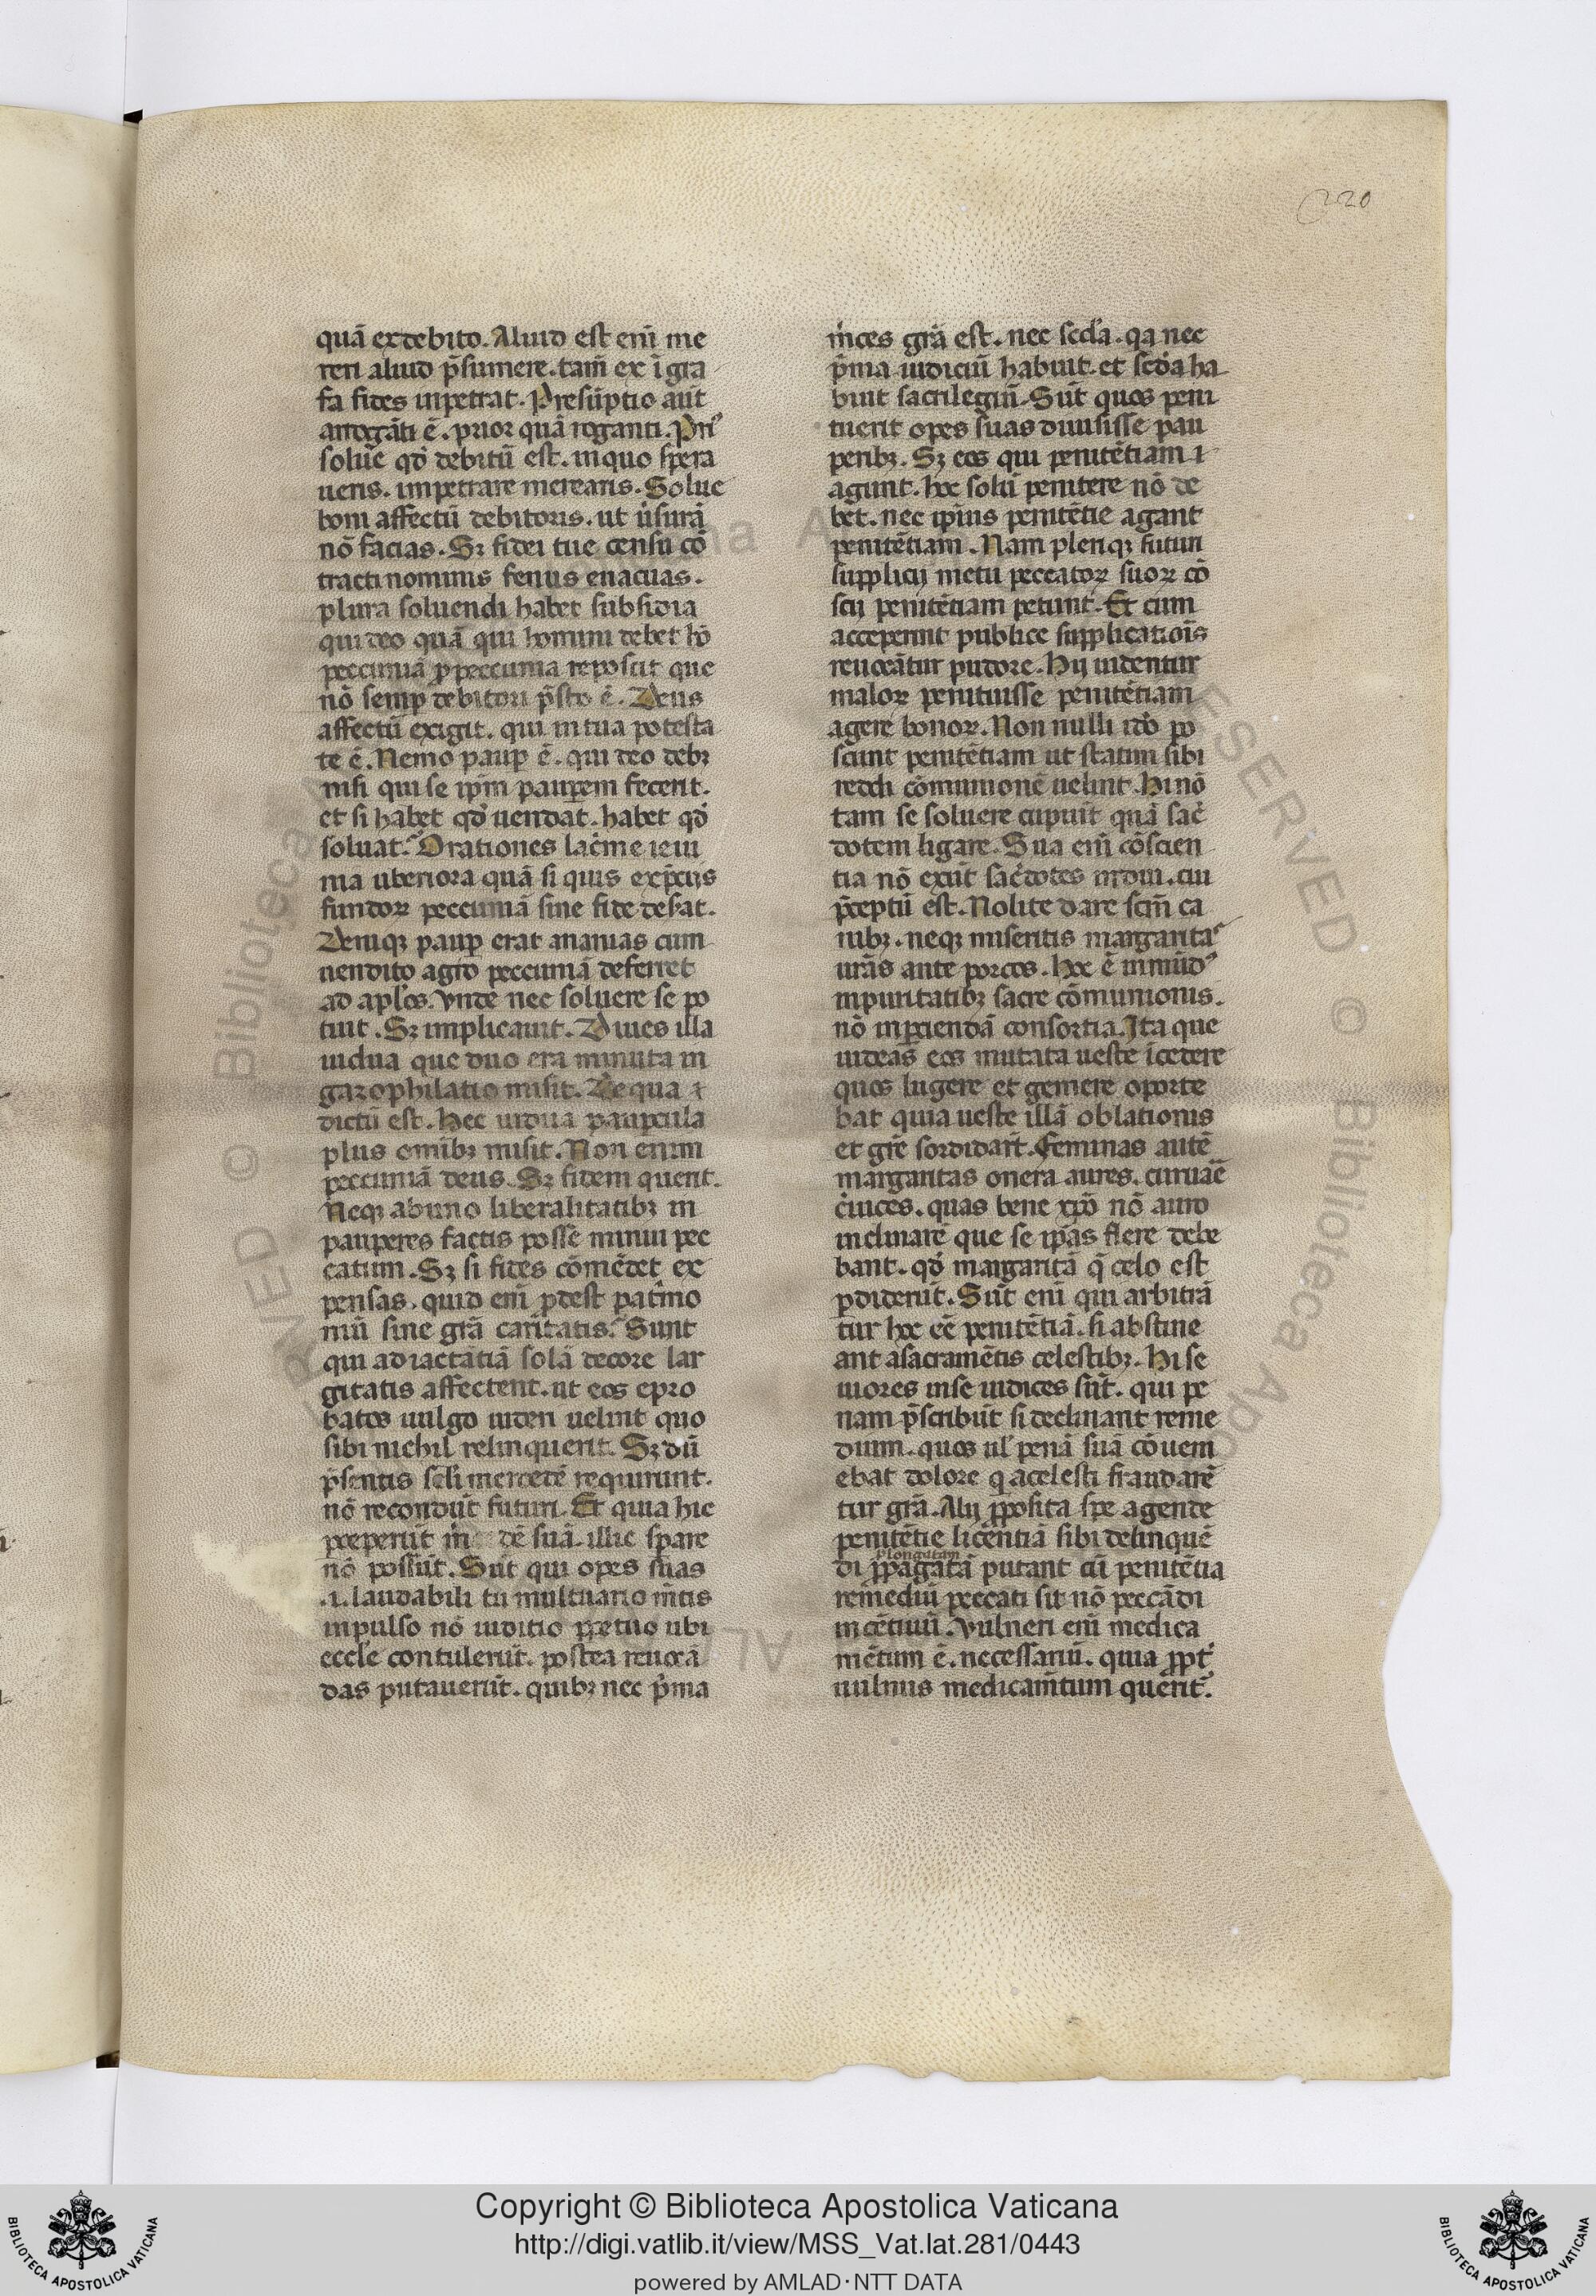 220
quā ex debito. Aliud est eni᷒ me
reri aliud p̄sumere. tam̄ ex ī gra
fa fides inpetrat. Presūptio aūt
arrogāti ē. prior quā roganti. Pri᷒
solue qd̓ debitū est. in quo spera
ueris. impetrare merearis. Solue
boni affectū debitoris. ut usurā
nō facias. Sꝫ fidei tue censu cō
tracti nominis fenus enacuas.
plura soluendi habet subsidia
qui deo quā qui homini debet hō
peccuniā ꝓ peccunia reposcit que
nō semꝑ debitori p̄sto ē. Deus
affectū exigit. qui in tua potesta
te ē. Nemo pauꝑ ē. qui deo debꝫ
nisi qui se ip̄m pauꝑem fecerit.
et si habet qd̓ uendat. habet qd̓
soluat. Orationes lac̓me ieiu
nia uberiora quā si quis ex p̄ciis
fundoꝝ peccuniā sine fide debat.
Deniqꝫ pauꝑ erat ananias cum
uendito agro peccuniā deferret
ad apl̓os. vnde nec soluere se po
tuit. Sꝫ implicauit. Diues illa
uidua que duo era minuta in
gazophilatio misit. De qua ⁊
dictū est. Hec uidua pauꝑcula
plus omībꝫ misit. Non enim
peccuniā deus. Sꝫ fidem querit.
Neqꝫ abimo liberalitatibꝫ in
pauperes factis posse minui pec
catum. Sꝫ si fides cōmēdet ex
pensas. quid eni᷒ ꝓdest pat̓mo
niū sine grā caritatis. Sunt
qui ad iactātiā solā decore lar
gitatis affectent. ut eos e pro
batos uulgo uideri uelint quo
sibi nichil relinquerit. Sꝫ dū
p̄sentis scl̓i mercedē requirunt.
nō recondūt futuri. Et quia hic
preperūt dē suā. illic spare
nō possūt. Sūt qui opes suas
.i. laudabili tumultuario m̄tis
inpulso nō iuditio ꝑpetuo ubi
eccl̓e contulerūt. postea reuocā
das putauerūt. quibꝫ nec p̓ma
m̓ces grā est. nec scd̓a. qa nec
p̓ma iudiciū habuit. et scd̓a ha
buit sacrilegiū. Sūt quos peni
tuerit opes suas diuisisse pau
peribꝫ. Sꝫ eos qui penitētiam
agunt. hoc solū penitere nō de
bet. nec ip̄ius penitētie agant
penitētiam. Nam pleriqꝫ futuri
supplicij metu peccatoꝝ suoꝝ cō
scij penitētiam petunt. Et cum
acceperint publice supplicatiōis
reuocātur pudore. Hij uidentur
maloꝝ penituisse penitētiam
agere bonoꝝ. Non nulli ido̓ po
scunt penitētiam ut statim sibi
reddi cōmunionē uelint. Hi nō
tam se soluere cupiūt quā sac̓
dotem ligare. Sua eni᷒ cōscien
tia nō exūt sac̓dotes induī. cui
p̄ceptū est. Nolite dare scm̄ ca
nibꝫ. neqꝫ miseritis margarita᷒
urās ante porcos. Hoc ē inmūd᷒
inpuritatibꝫ sacre cōmunionis.
nō inꝑciendā consortia. Ita que
uideas eos mutata ueste īcedere
quos lugere et gemere oporte
bat quia ueste illā oblationis
et gr̄e sordidart̓. Feminas autē
margaritas onera aures. curuāē
c̓uices. quas bene xp̄o nō auro
inclinarē que se ip̄as flere debe
bant. qd̓ margaritā q̄ celo est
ꝑdiderūt. Sūt eni᷒ qui arbitrā
tur hoc eē penitētiā. si abstine
ant a sacramētis celestibꝫ. Hi se
uiores in se iudices sūt. qui pe
nam p̄scribūt si declinant reme
dium. quos ul̓ penā suā cōuem
ebat dolore q a celesti fraudarē
tur grā. Alij ꝓposita spe agende
penitētie licentiā sibi delinquē
ꝓlongatam
di ꝓpagatā putant cū penitētia
remediū peccati sit nō peccādi
incētiuū. Vulneri eni᷒ medica
mētum ē. necessariū. quia ꝓpt̓
uulnus medicam̄tum querit᷒.
Copyright © Biblioteca Apostolica Vaticana
http://digi.vatlib.it/view/MSS_Vat.lat.281/0443
powered by AMLAD·NTT DATA